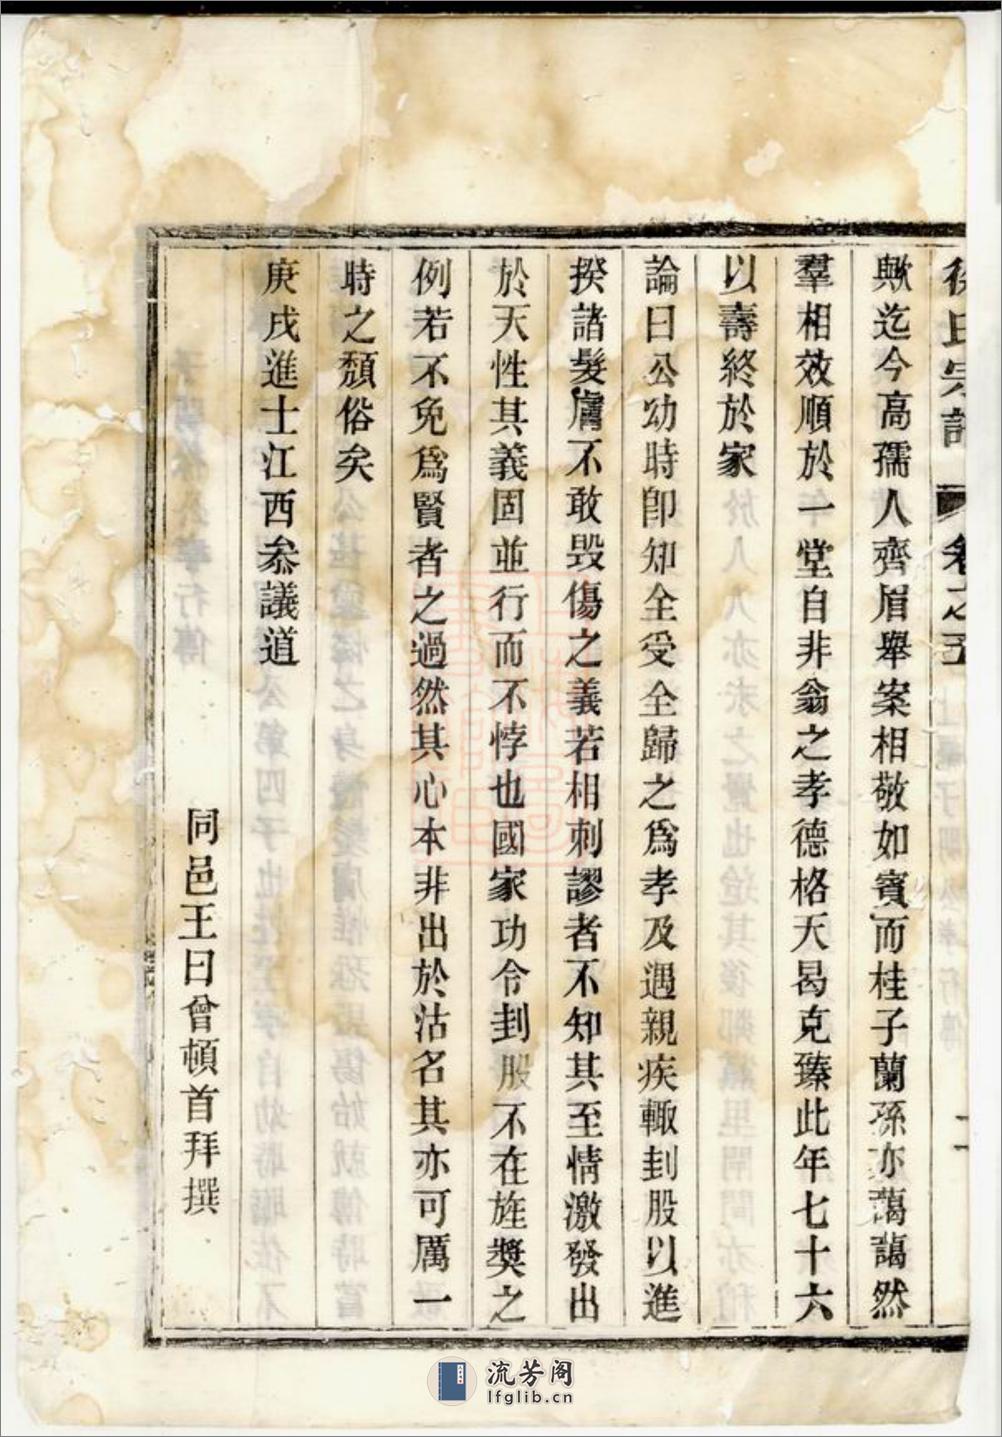 氏宗譜 卷之五 二
歟迄今高孺人齊眉舉案相敬如賓而桂子蘭孫亦藹藹然
羣相效順於一堂自非翁之孝德格天曷克臻此年七十六
以壽終於家
論曰公幼時卽知全受全歸之爲孝及遇親疾輙刲股以進
揆諸髮膚不敢毀傷之義若相刺謬者不知其至情激發出
於天性其義固並行而不悖也國家功令刲股不在旌獎之
例若不免爲賢者之過然其心本非出於沽名其亦可厲一
時之頹俗矣
庚戌進士江西叅議道
同邑王曰曾頓首拜撰
流芳阁
lfglib.cn